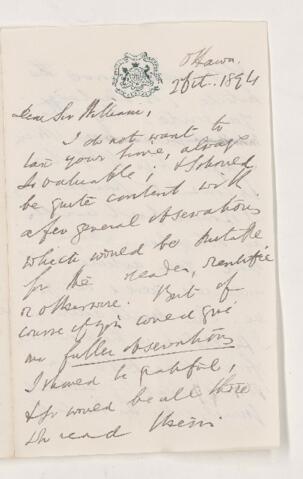 Ottawa.
2 Oct. 1894
Dear Sir William,
I do not want to
tax your time, always
so valuable; & should
be quite content with
a few general observations
which would be suitable
for the reader, scientific
or otherwise. But of
course if you could give
me fuller observations
I should be grateful,
& so would be all those
who read